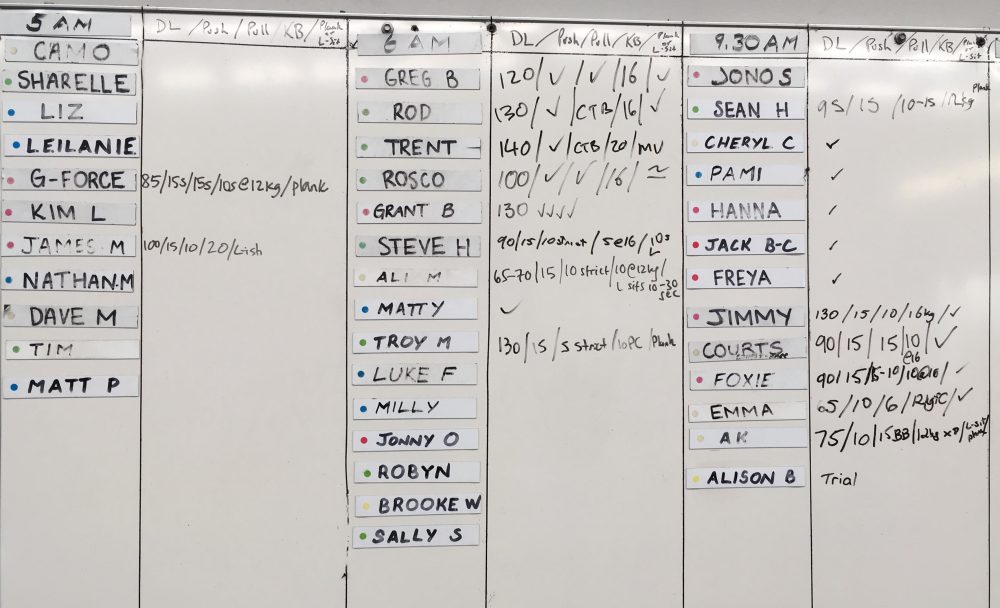 5 AM
DL / Push / Pull / KB / Plank or L-Sit
CAMO
SHARELLE
LIZ
LEILANIE
G-FORCE 85/15s/15s/10s@12kg/plank
KIM L
JAMES M 100/15/10/20/Lish
NATHAN.M
DAVE M
TIM
MATT P
AM
DL / Push / Pull / KB / Plank or L-Sit
GREG B 120/✓/✓/16/✓
ROD 130/✓/CTB/16/✓
TRENT 140/✓/CTB/20/MV
ROSCO 100/✓/✓/16/≈
GRANT B 130 ✓✓✓✓
STEVE H 90/15/10 strict/5@16/10s L
ALI M 65-70/15/10 strict/10@12kg/
L sits 10-30 sec
MATTY ✓
TROY M 130/15/5 strict/10PC/Plank
LUKE F
MILLY
JONNY O
ROBYN
BROOKE W
SALLY S
9.30 AM
DL / Push / Pull / KB / Plank or L-Sit
JONO S
SEAN H 95/15/10-15/12kg Plank
CHERYL C ✓
PAMI ✓
HANNA ✓
JACK B-C ✓
FREYA ✓
JIMMY 130/15/10/16kg/✓
COURTS 90/15/15/10@16/✓
FOXIE 90/15/5-10/10@16/✓
EMMA 65/10/6/12kg/✓
AK 75/10/15BB/12kg x8/L-sit/plank
ALISON B Trial